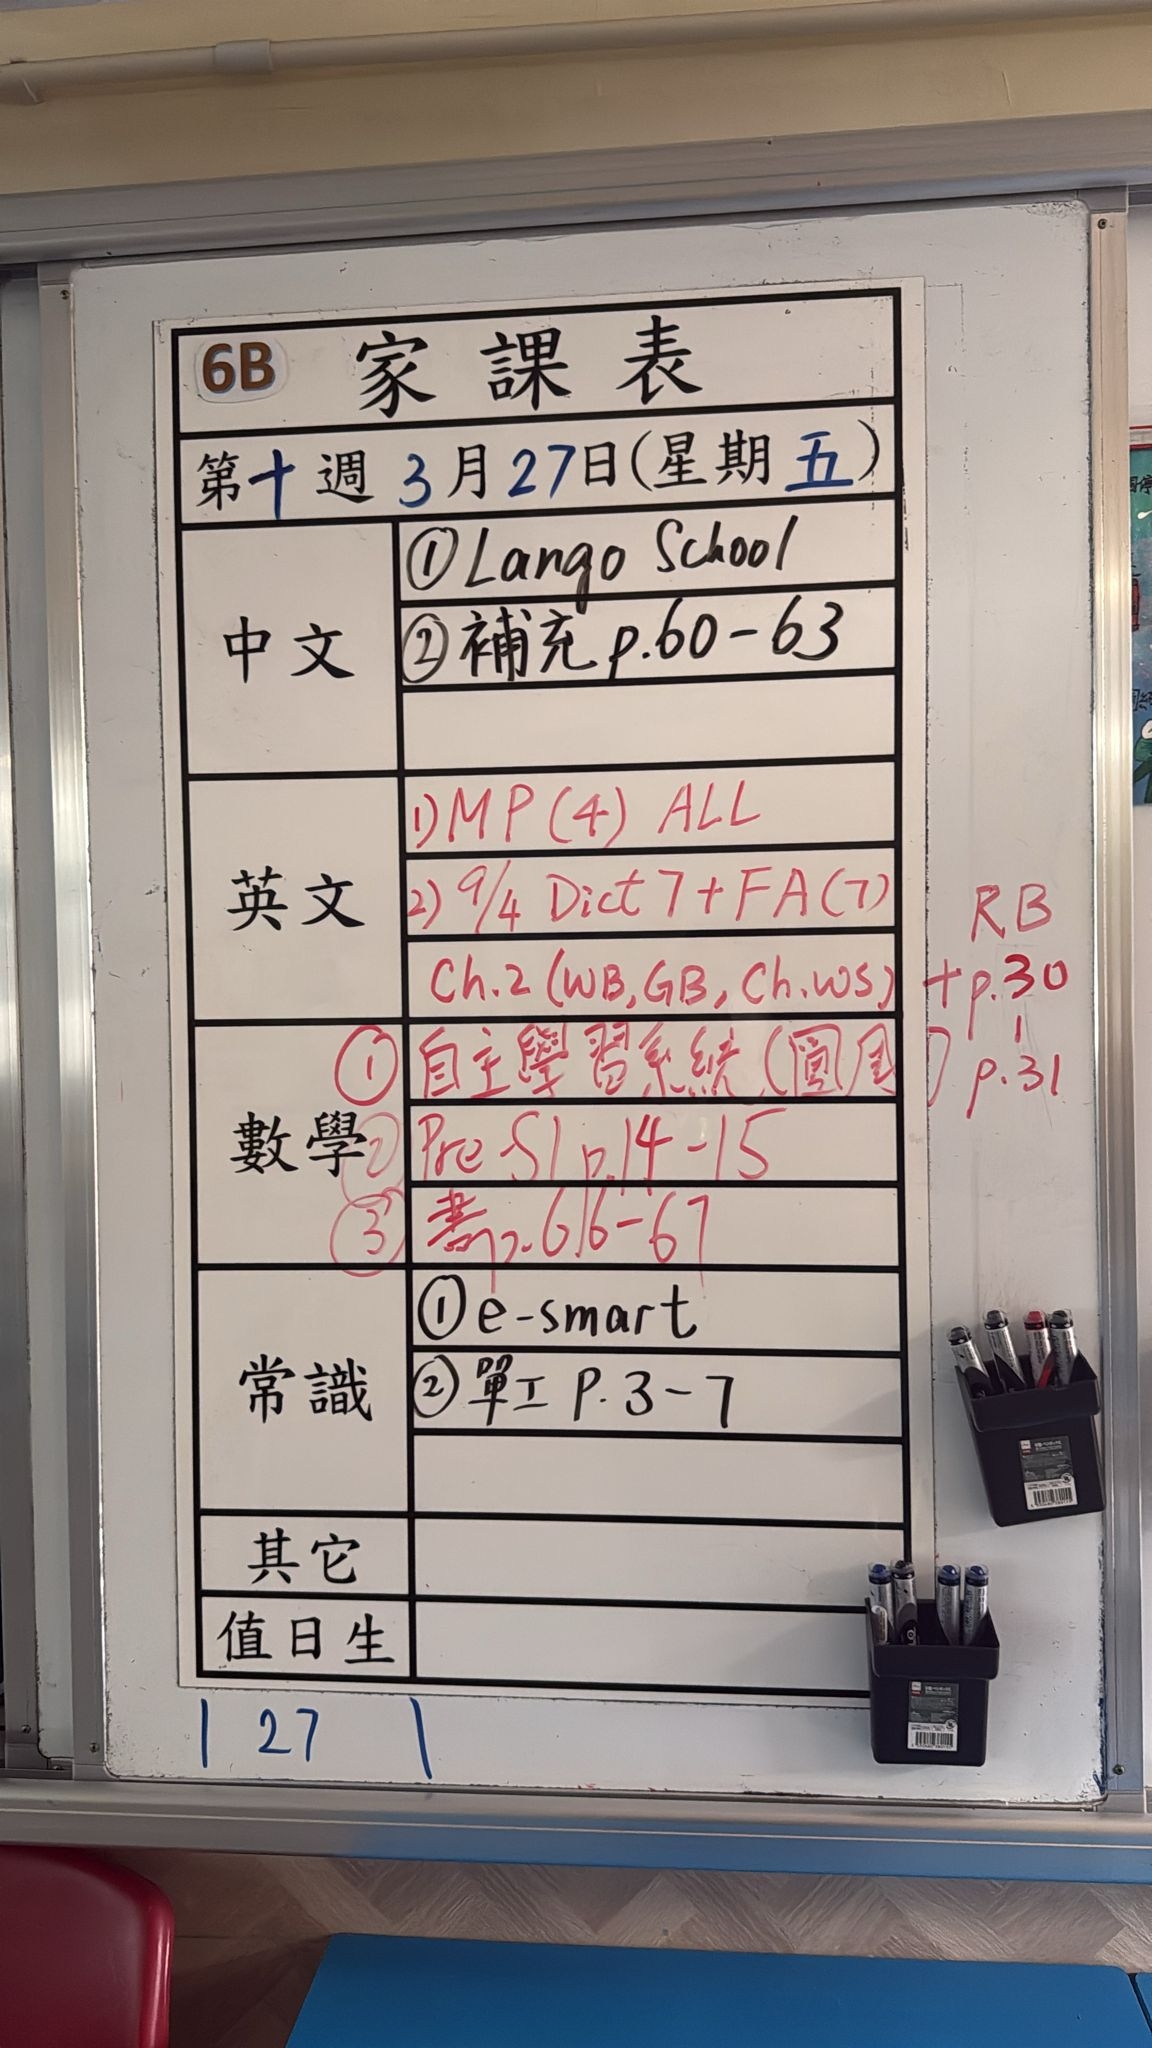 6B 家課表
第十週 3月27日(星期五)
中文
①Lango School
②補充 p.60-63
英文
1) MP (4) ALL
2) 9/4 Dict 7 + FA(7)
Ch.2 (WB, GB, Ch.WS) + p.30
RB
p.31
數學
① 自主學習系統 (圓周)
② Pre S1 p.14-15
③ 書p.66-67
常識
①e-smart
②單工 P.3-7
其它
值日生
27